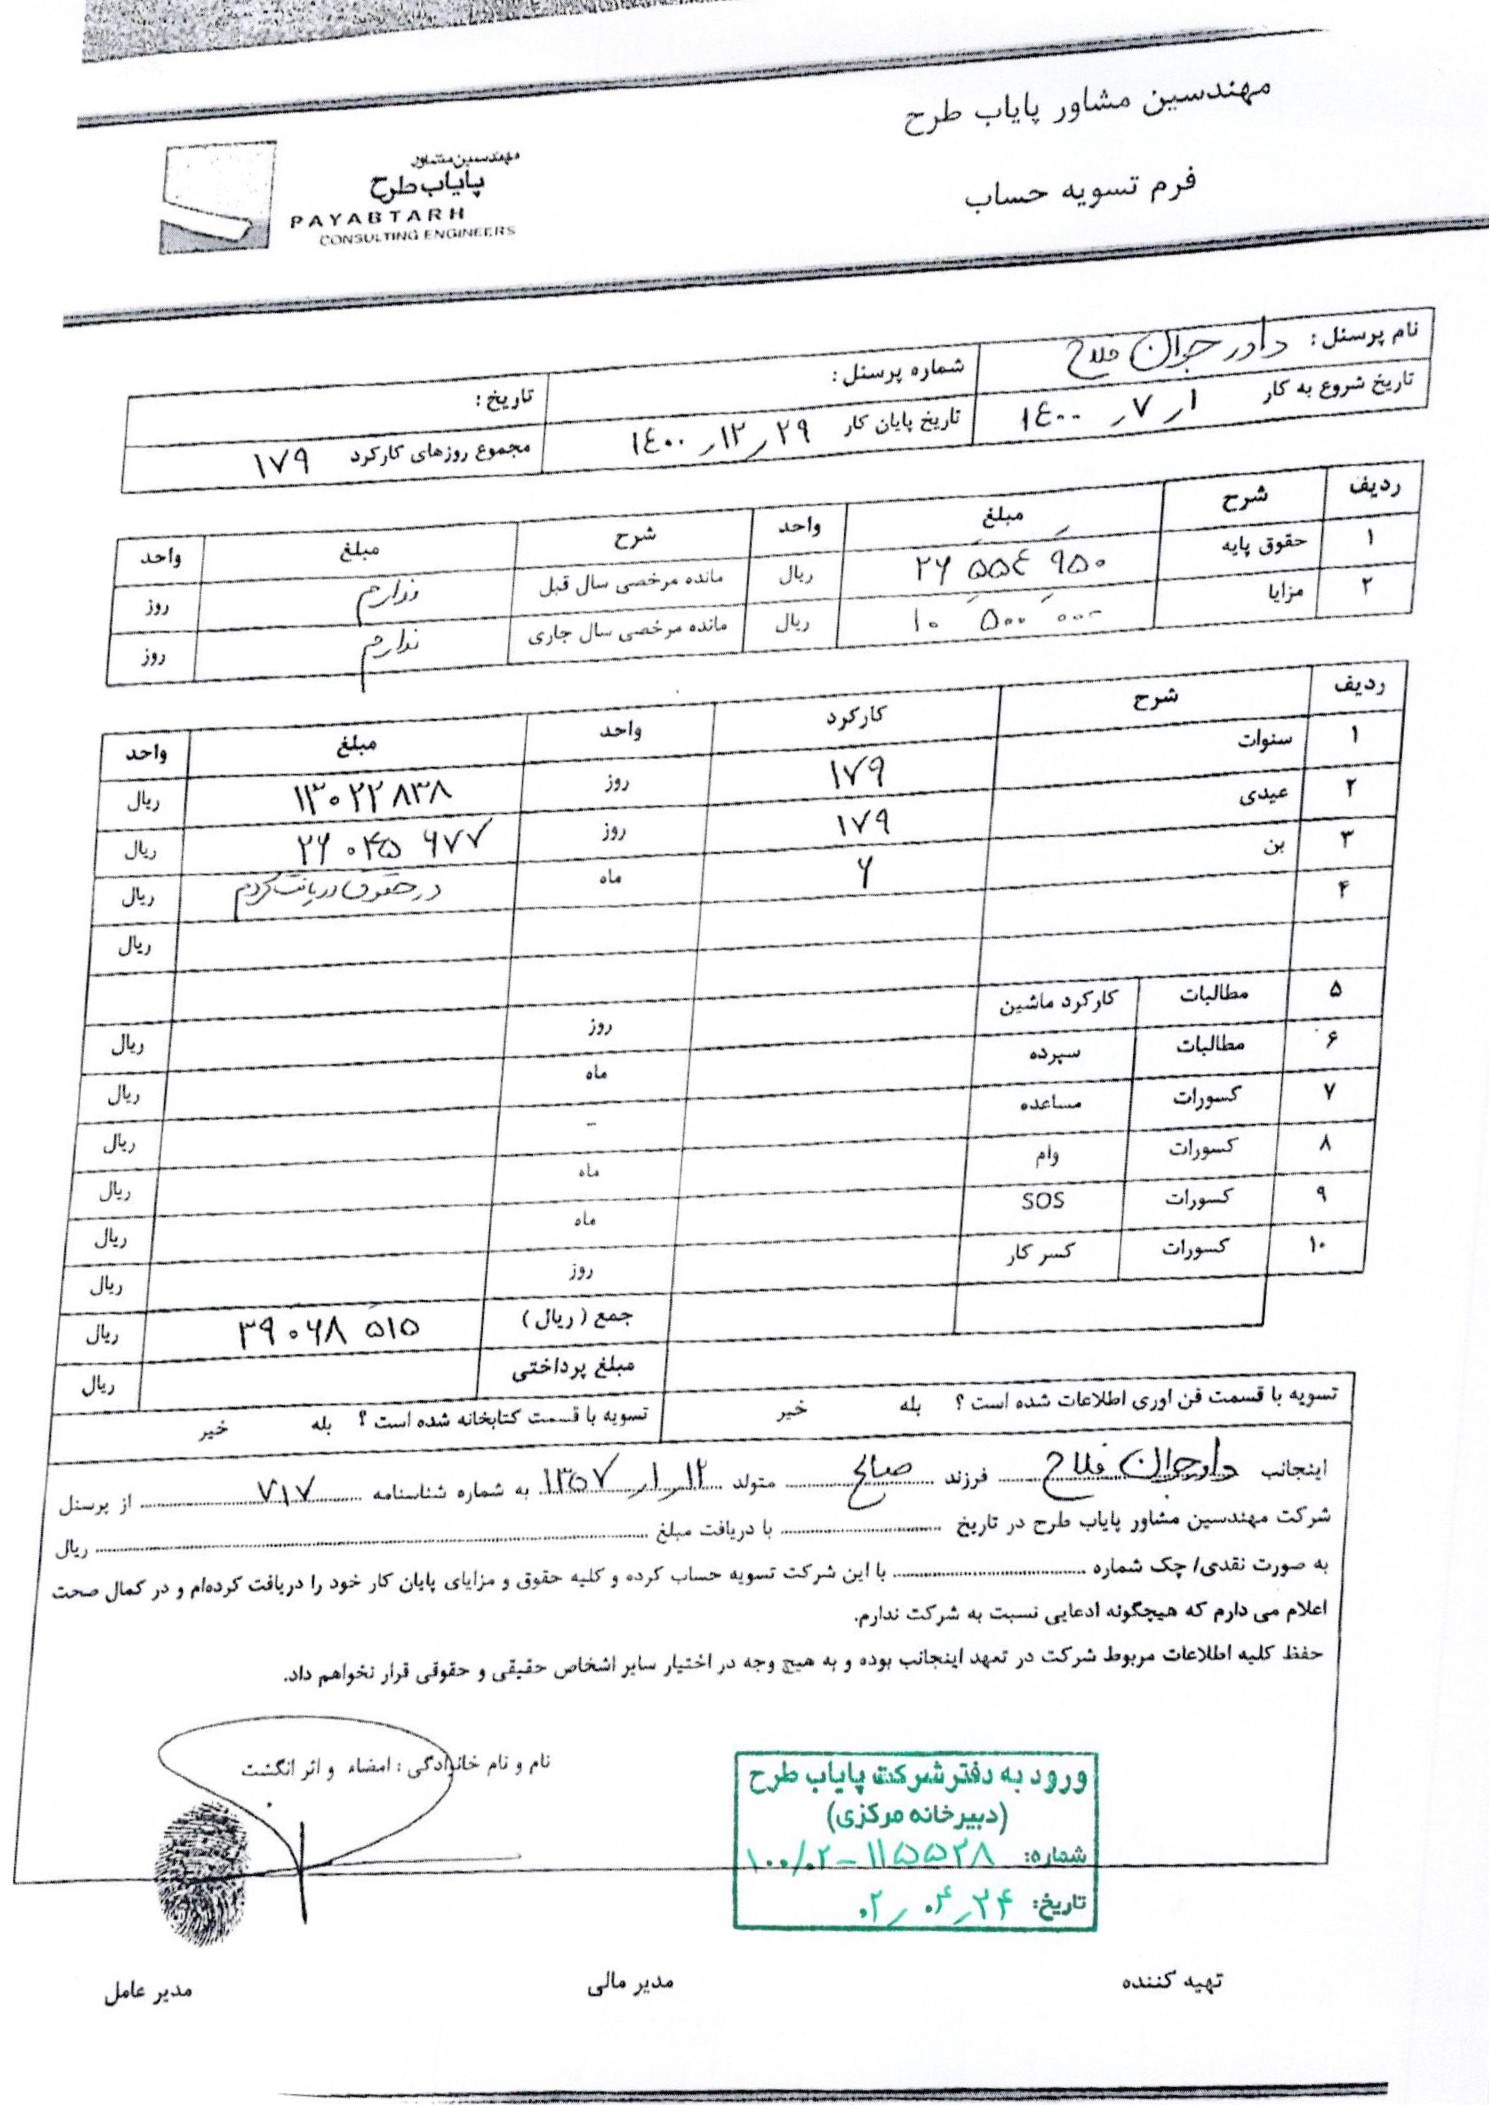 مهندسین مشاور پایاب طرح
فرم تسویه حساب
مهندسین مشاور
پایاب طرح
PAYABTARH
CONSULTING ENGINEERS
نام پرسنل : فلاح شماره پرسنل : تاریخ :
تاریخ شروع به کار ۱۴۰۰٫۷٫۱ تاریخ پایان کار ۱۴۰۰٫۱۲٫۲۹ مجموع روزهای کارکرد ۱۷۹
ردیف شرح مبلغ واحد شرح مبلغ واحد
۱ حقوق پایه ۲۶ ۵۵۴ ۹۵۰ ریال مانده مرخصی سال قبل ندارم روز
۲ مزایا ۱۰ ۵۰۰ ۰۰۰ ریال مانده مرخصی سال جاری ندارم روز
ردیف شرح کارکرد واحد مبلغ واحد
۱ سنوات ۱۷۹ روز ۱۳۰۲۲۸۳۸ ریال
۲ عیدی ۱۷۹ روز ۲۶۰۴۵ ۶۷۷ ریال
۳ بن ۶ ماه در حقوق دریافت کردم ریال
۴ ریال
۵ مطالبات کارکرد ماشین روز ریال
۶ مطالبات سپرده ماه ریال
۷ کسورات مساعده - ریال
۸ کسورات وام ماه ریال
۹ کسورات SOS ماه ریال
۱۰ کسورات کسر کار روز ریال
جمع ( ریال ) ۳۹۰۶۸ ۵۱۵ ریال
مبلغ پرداختی ریال
تسویه با قسمت فن اوری اطلاعات شده است ؟ بله خیر تسویه با قسمت کتابخانه شده است ؟ بله خیر
اینجانب فلاح فرزند صالح متولد ۱۳۵۷٫۱٫۱۲ به شماره شناسنامه ۷۱۷ از پرسنل
شرکت مهندسین مشاور پایاب طرح در تاریخ .......... با دریافت مبلغ .......... ریال
به صورت نقدی/ چک شماره .......... با این شرکت تسویه حساب کرده و کلیه حقوق و مزایای پایان کار خود را دریافت کرده‌ام و در کمال صحت
اعلام می دارم که هیچگونه ادعایی نسبت به شرکت ندارم.
حفظ کلیه اطلاعات مربوط شرکت در تعهد اینجانب بوده و به هیچ وجه در اختیار سایر اشخاص حقیقی و حقوقی قرار نخواهم داد.
نام و نام خانوادگی : امضاء و اثر انگشت
ورود به دفتر شرکت پایاب طرح
(دبیرخانه مرکزی)
شماره: ۱۰۰/۰۲-۱۱۵۵۲۸
تاریخ: ۰۲٫۰۴٫۲۴
تهیه کننده مدیر مالی مدیر عامل